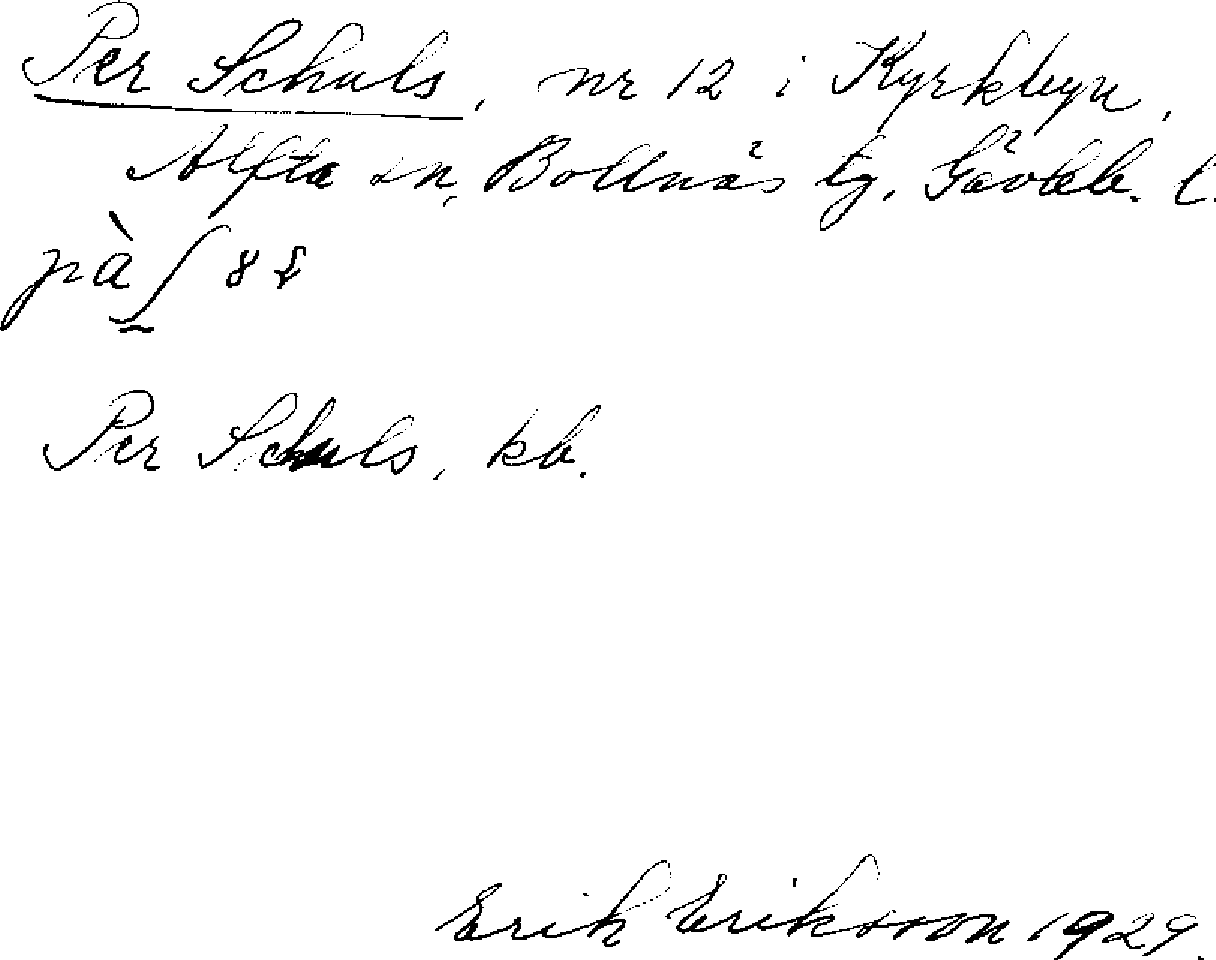 Per Schuls, nr 12 i Kyrkbyn,
Alfta sn, Bollnäs tg. Gävleb. l.
på
Per Schuls, kb.
Erik Eriksson 1929.